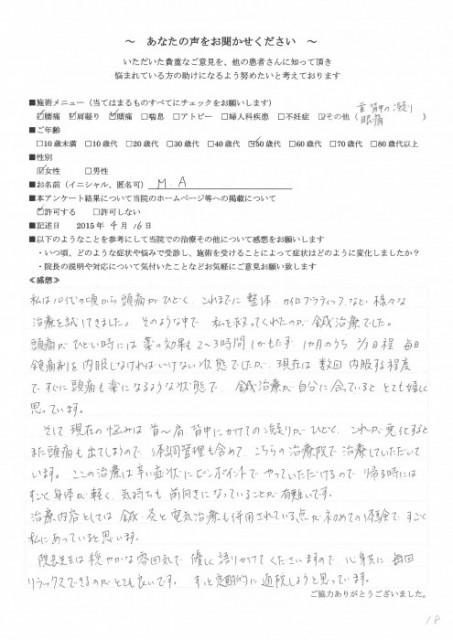 ～ あなたの声をお聞かせください ～
いただいた貴重なご意見を、他の患者さんに知って頂き
悩まれている方の助けになるよう努めたいと考えております
■施術メニュー（当てはまるものすべてにチェックをお願いします）
☑腰痛 ☑肩凝り ☑頭痛 □喘息 □アトピー □婦人科疾患 □不妊症 ☑その他（首 背中の凝り 眼痛）
■ご年齢
□10歳未満 □10歳代 □20歳代 □30歳代 □40歳代 ☑50歳代 □60歳代 □70歳代 □80歳代以上
■性別
☑女性 □男性
■お名前（イニシャル、匿名可） M. A
■本アンケート結果について当院のホームページ等への掲載について
☑許可する □許可しない
■記述日 2015年 4月 16日
■以下のようなことを参考にして当院での治療その他について感想をお願いします
・いつ頃、どのような症状や悩みで受診し、施術を受けることによって症状はどのように変化しましたか？
・院長の説明や対応について気付いたことなどお気軽にご意見お願い致します
≪感想≫
私は10代の頃から頭痛がひどく、これまでに整体 カイロプラティックなど様々な
治療を試してきました。そのような中で 私を救ってくれたのが、鍼治療でした。
頭痛がひどい時には薬の効果も2〜3時間しかもたず 1か月のうち 2/3日程 毎日
鎮痛剤を内服しなければいけない状態でしたが、現在は数回内服する程度
ですぐに頭痛も楽になるような状態で、鍼治療が自分に合っていると とても嬉しく
思っています。
そして現在の悩みは首〜肩 背中にかけての凝りがひどく、これが悪化すると
また頭痛も出てしまうので、体調管理も含めて、こちらの治療院で治療していただいて
います。ここの治療は辛い症状にピンポイントでやっていただけるので 帰る時には
すごく身体が軽く、気持ちも前向きになっていることが有難いです。
治療内容としては 鍼・灸と電気治療も併用されている点が初めての体験で すごく
私にあっていると思います。
院長先生は穏やかな雰囲気で 優しく語りかけてくださいますので 心身共に 毎回
リラックスできるのがとても良いです。 ずっと定期的に通院しようと思っています。
ご協力ありがとうございました。
18